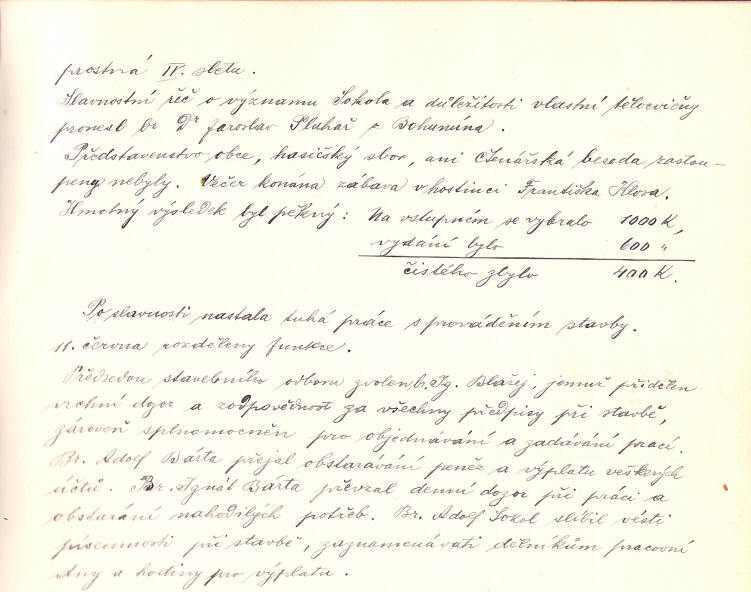 prostná IV. sletu.
Slavnostní řeč o významu Sokola a důležitosti vlastní tělocvičny
pronesl br Dr Jaroslav Pluhař z Bohumína.
Představenstvo obce, hasičský sbor, ani Čtenářská beseda zastou-
peny nebyly. Večer konána zábava v hostinci Františka Klosa.
Hmotný výsledek byl pěkný: Na vstupném se vybralo 1000 K,
vydání bylo 600 „
čistého zbylo 400 K.
Po slavnosti nastala tuhá práce s prováděním stavby.
11. června rozděleny funkce.
Předsedou stavebního odboru zvolen br. Ig. Blažej, jemuž přidělen
vrchní dozor a zodpovědnost za všechny předpisy při stavbě,
zároveň splnomocněn pro objednávání a zadávání prací.
Br. Adolf Bárta přejal obstarávání peněz a výplatu veškerých
účtů. Br. Ignát Bárta převzal denní dozor při práci a
obstarání nahodilých potřeb. Br. Adolf Sokol slíbil vésti
písemnosti při stavbě, zaznamenávati dělníkům pracovní
dny a hodiny pro výplatu.